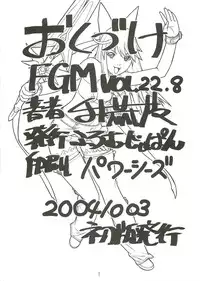 おくづけ
FGM VOL.22.8
著者 手荒波
発行 こうちじゃぱん
印刷 パワーシーズ
2004/10/03
ネコ版発行